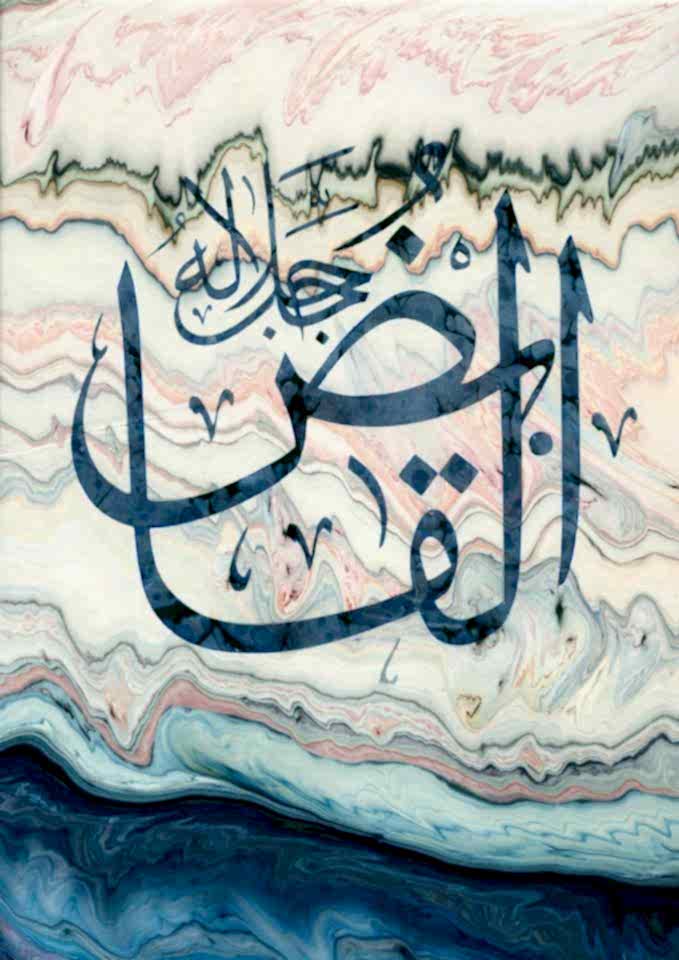 القابض
جل جلاله